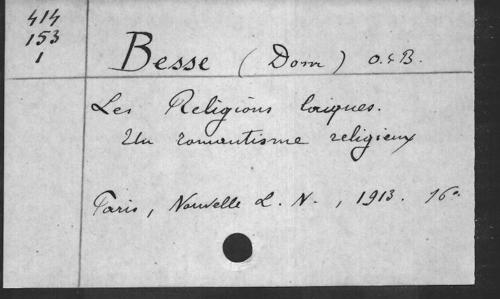 414
153
1
Besse (Dom) O.S.B.
Les Religions laïques.
Un romantisme religieux
Paris, Nouvelle L. N., 1913. 16°.